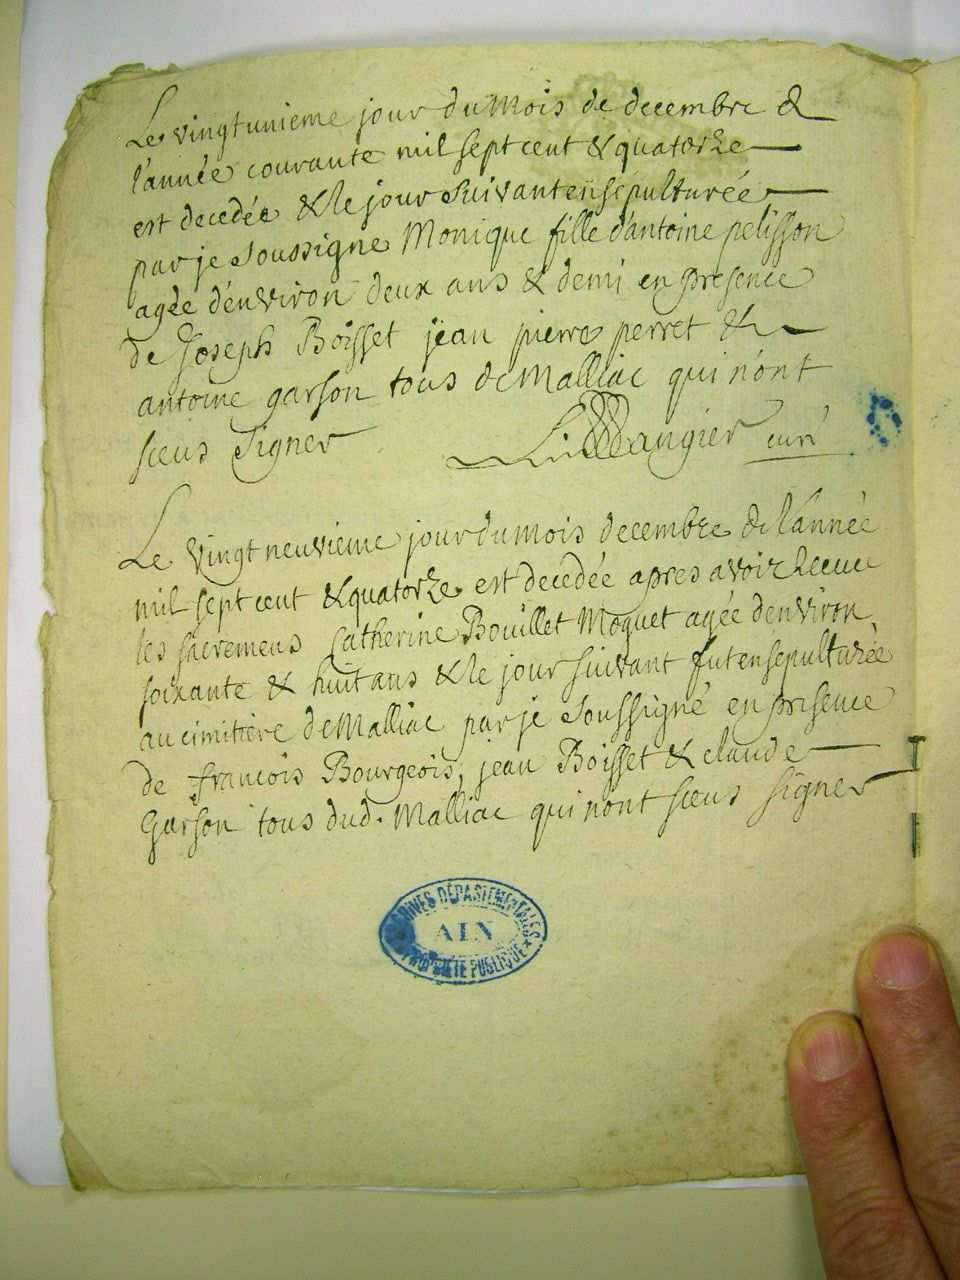 Le vingt unieme jour du mois de decembre &
l'année courante mil sept cent & quatorze
est decedée & le jour suivant ensépulturée
par je soussigne Monique fille d'antoine pelisson
agée d'énviron deux ans & demi en presence
de Joseph Boisset jean pierre perret &
antoine garson tous de Malliac qui n'ont
sceus signer Dangier curé
Le vingt neuvieme jour du mois decembre de l'année
mil sept cent & quatorze est decedée apres avoir receu
les sacremens Catherine Bouillet Moquet agée d'environ
soixante & huit ans & le jour suivant fut ensepulturée
au cimitière de Malliac par je soussigné en presence
de françois Bourgeois, jean Boisset & claude
Garson tous dud. Malliac qui n'ont sceus signer
ARCHIVES DÉPARTEMENTALES
AIN
PROPRIÉTÉ PUBLIQUE